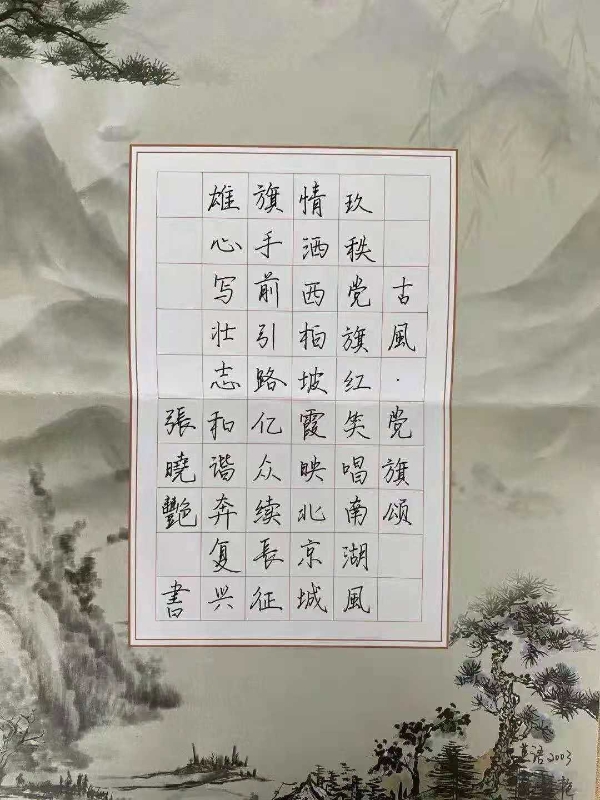 古風·党旗頌
玖秩党旗红笑唱南湖風
情洒西柏坡霞映北京城
旗手前引路亿众续長征
雄心写壮志和谐奔复兴
張曉艷書
2003